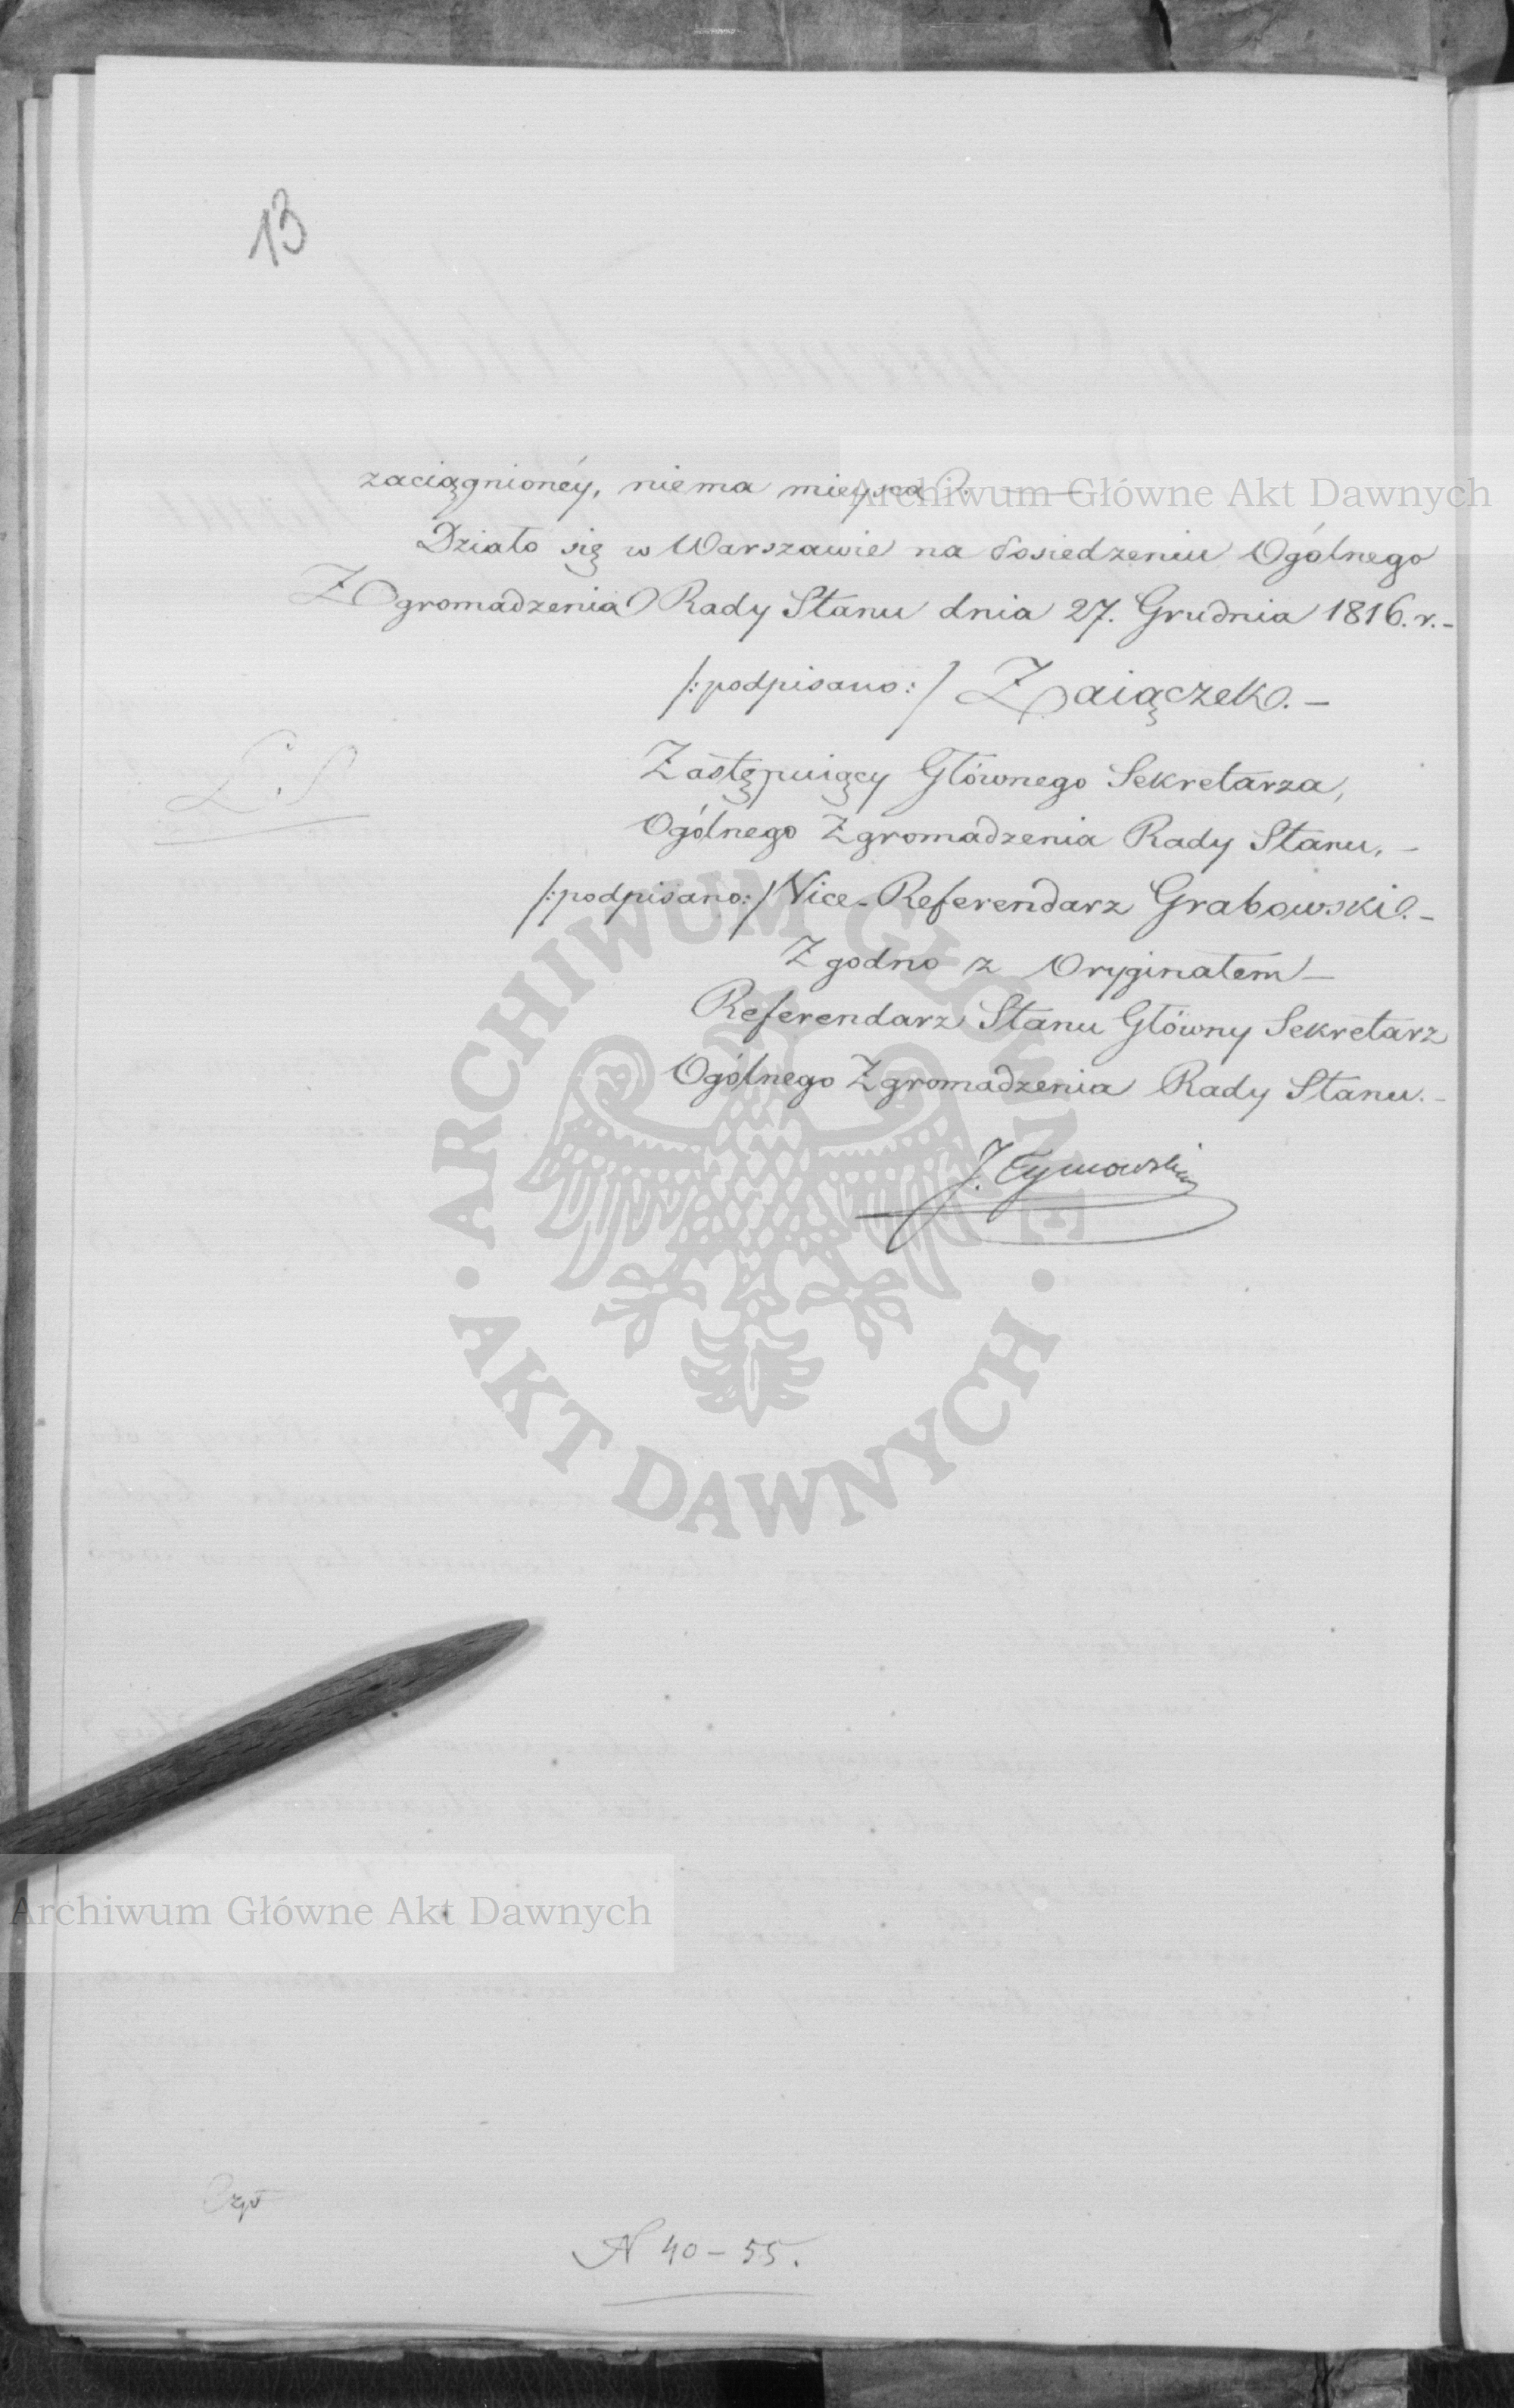 13
zaciągnionéy, niema mieysca. —
Archiwum Główne Akt Dawnych
Działo się w Warszawie na Posiedzeniu Ogólnego
Zgromadzenia Rady Stanu dnia 27. Grudnia 1816. r.–
/:podpisano:/ Zaiączek. –
L. S
Zastępuiący Głównego Sekretarza,
Ogólnego Zgromadzenia Rady Stanu, –
/:podpisano:/ Vice-Referendarz Grabowski. –
Zgodno z Oryginałem –
Referendarz Stanu Główny Sekretarz
Ogólnego Zgromadzenia Rady Stanu. –
J. Tymowski
ARCHIWUM GŁÓWNE
AKT DAWNYCH
Archiwum Główne Akt Dawnych
N 40 – 55.